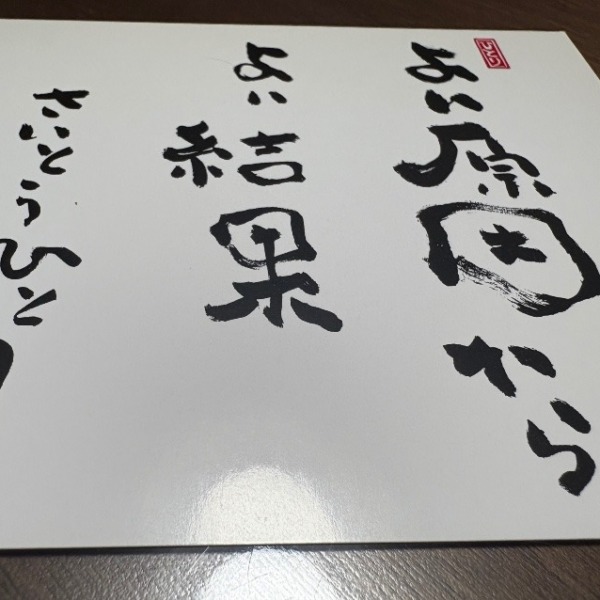 よい原因から
よい結果
さいとうひと